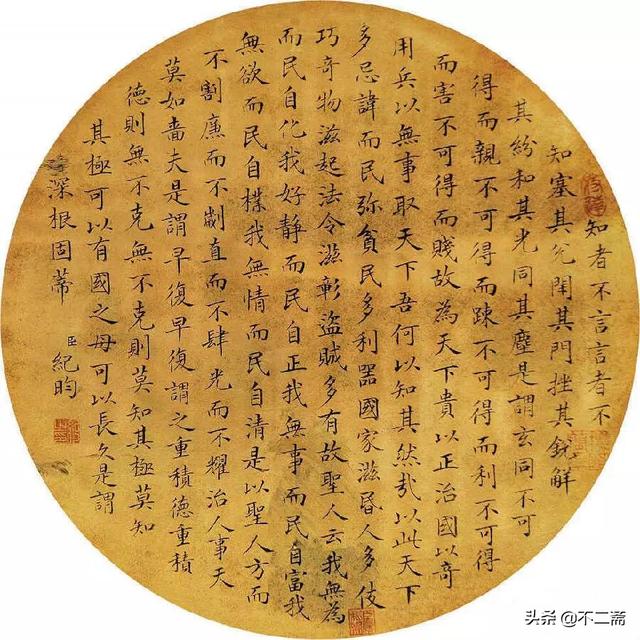 知者不言言者不
知塞其兊閉其門挫其銳解
其紛和其光同其塵是謂玄同不可
得而親不可得而踈不可得而利不可得
而害不可得而賤故為天下貴以正治國以奇
用兵以無事取天下吾何以知其然哉以此天下
多忌諱而民弥貧民多利器國家滋昏人多伎
巧奇物滋起法令滋彰盜賊多有故聖人云我無為
而民自化我好静而民自正我無事而民自富我
無欲而民自樸我無情而民自清是以聖人方而
不割廉而不劌直而不肆光而不耀治人事天
莫如嗇夫是謂早復早復謂之重積德重積
德則無不克無不克則莫知其極莫知
其極可以有國之母可以長久是謂
深根固蒂
臣紀昀
头条 @不二斋